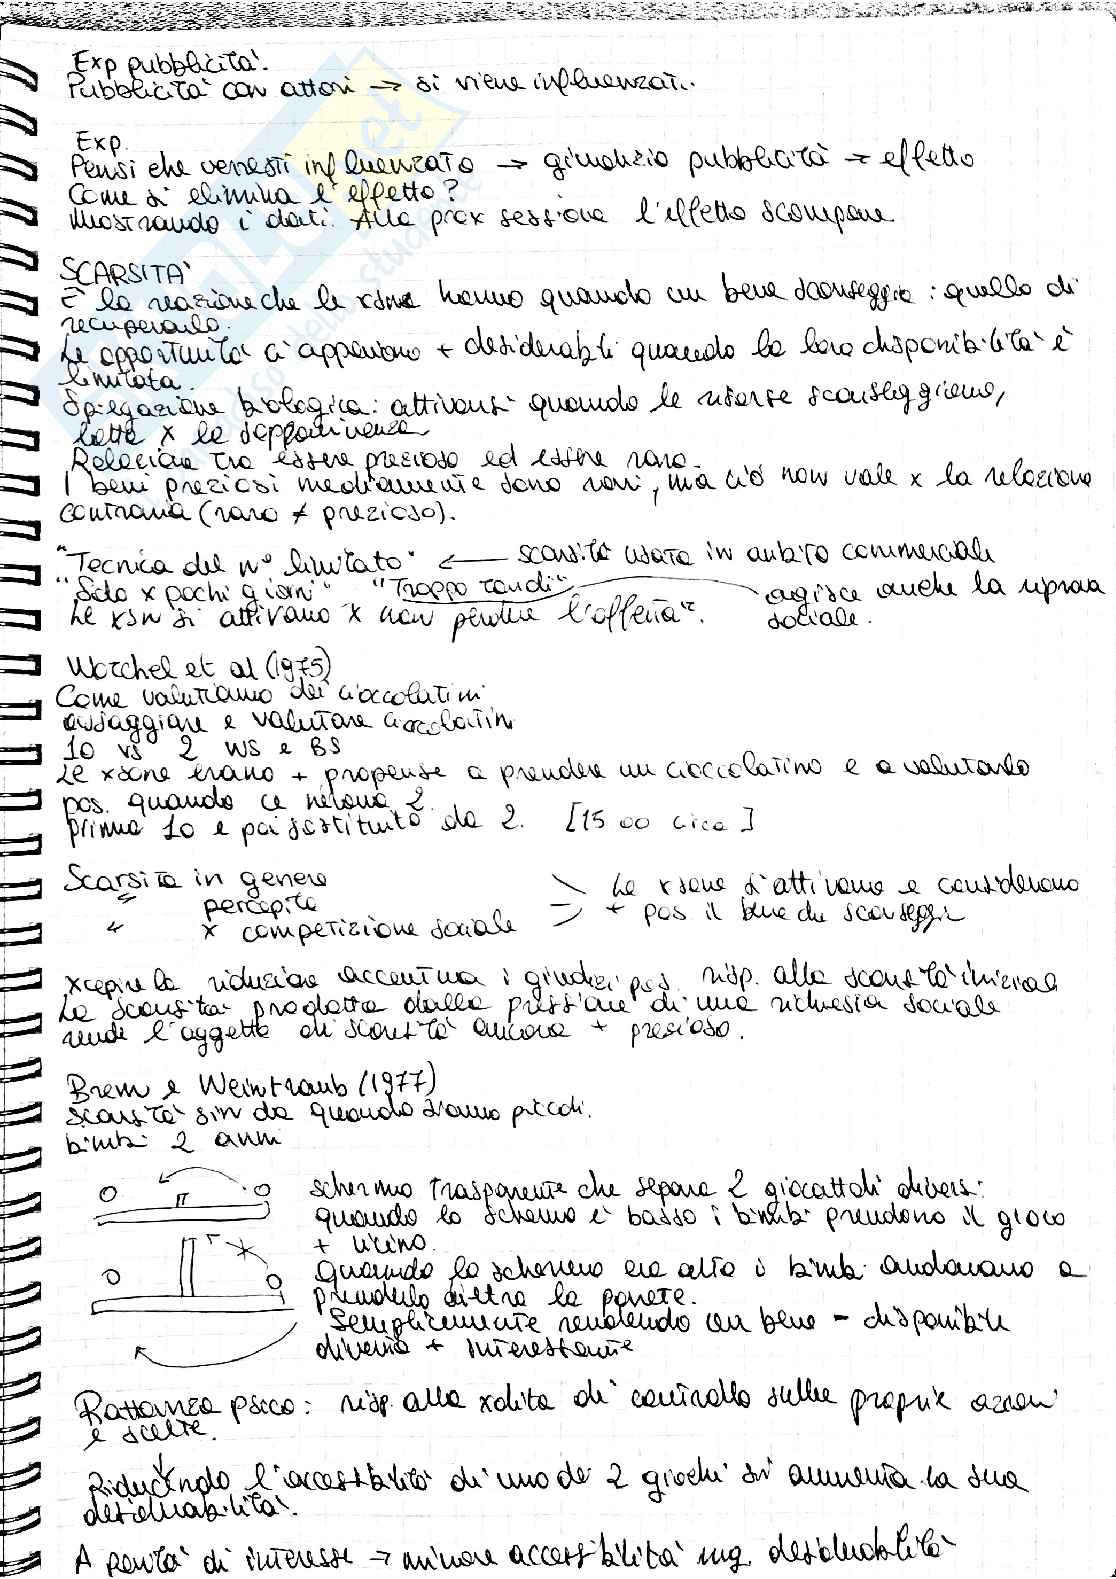 Exp pubblicità.
Pubblicità con attori → si viene influenzati.
Exp.
Pensi che verresti influenzato → giudizio pubblicità → effetto
Come si elimina l'effetto?
Mostrando i dati. Alla prox sessione l'effetto scompare
SCARSITÀ
È la reazione che le xsone hanno quando un bene scarseggia: quello di
recuperarlo.
Le opportunità ci appaiono + desiderabili quando la loro disponibilità è
limitata.
Spiegazione biologica: attivarsi quando le risorse scarseggiano,
lotta x la sopravvivenza
Relazione tra essere prezioso ed essere raro.
I beni preziosi mediamente sono rari, ma ciò non vale x la relazione
contraria (raro ≠ prezioso).
"Tecnica del n° limitato" ← scarsità usata in ambito commerciale
"Solo x pochi giorni" "Troppo tardi" agisce anche la riprova
Le xsn si attivano x non perdere l'offerta. sociale.
Worchel et al (1975)
Come valutiamo dei cioccolatini
assaggiare e valutare cioccolatini
10 vs 2 WS e BS
Le xsone erano + propense a prendere un cioccolatino e a valutarlo
pos. quando ce n'erano 2.
prima 10 e poi sostituito da 2. [15 00 circa]
Scarsità in genere
" percepita
" x competizione sociale
Le xsone s'attivano e considerano
+ pos il bene che scarseggia
xcepire la riduzione accentua i giudizi pos. risp. alla scarsità iniziale
La scarsità prodotta dalla pressione di una richiesta sociale
rende l'oggetto di scarsità ancora + prezioso.
Brem e Weintraub (1977)
scarsità sin da quando siamo piccoli.
bimbi 2 anni
schermo trasparente che separa 2 giocattoli diversi:
quando lo schermo è basso i bimbi prendono il gioco
+ vicino.
Quando lo schermo era alto i bimbi andavano a
prenderlo dietro la parete.
Semplicemente rendendo un bene - disponibile
diventa + interessante
Rattanza psico: risp. alla xdita di controllo sulle proprie azioni
e scelte.
Riducendo l'accessibilità di uno dei 2 giochi si aumenta la sua
desiderabilità.
A parità di interesse → minore accessibilità mg. desiderabilità